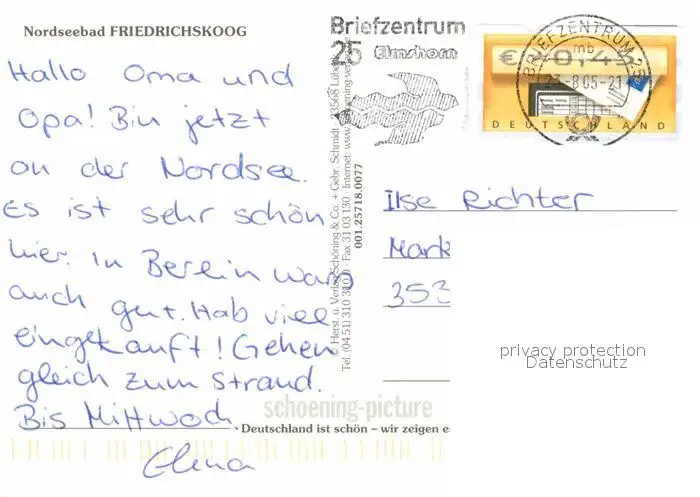 Nordseebad FRIEDRICHSKOOG
Hallo Oma und
Opa! Bin jetzt
an der Nordsee.
Es ist sehr schön
hier. In Berlin wars
auch gut. Hab viel
eingekauft! Gehen
gleich zum Strand.
Bis Mittwoch
Elena
© Herst. u. Verlag Schöning & Co. + Gebr. Schmidt · 23568 Lübeck
Tel. (04 51) 310 31 0 · Fax 31 03 130 · Internet: www.schoening-
001.25718.0077
Briefzentrum
25 Elmshorn
BRIEFZENTRUM 25
mb
-8.05-21
€ 0,45
DEUTSCHLAND
Ilse Richter
Mark
353
privacy protection
Datenschutz
schoening-picture
Deutschland ist schön – wir zeigen e